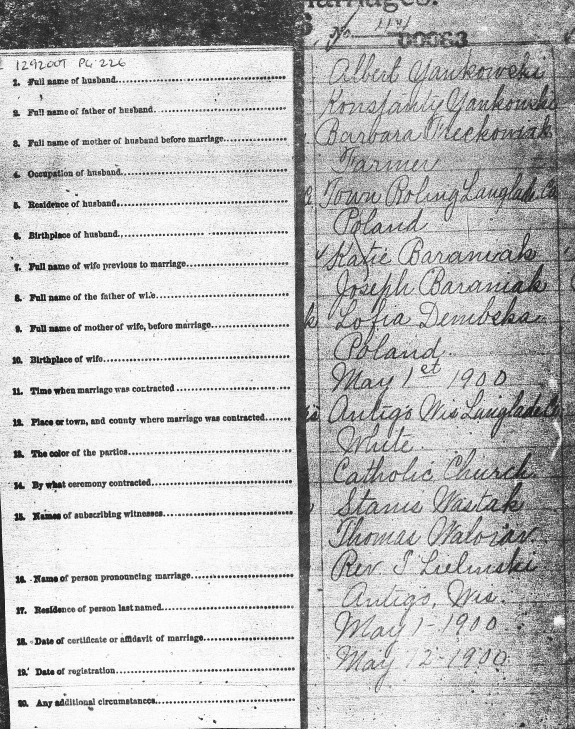 arriages.
No. 1141
00083
1292007 PG 226
1. Full name of husband
Albert Yankowski
2. Full name of father of husband
Konstanty Yankowski
3. Full name of mother of husband before marriage
Barbara
4. Occupation of husband
Farmer
5. Residence of husband
Town Roling Langlade Co
6. Birthplace of husband
Poland
7. Full name of wife previous to marriage
Katie Baraniak
8. Full name of the father of wife
Joseph Baraniak
9. Full name of mother of wife, before marriage
Zofia Dembska
10. Birthplace of wife
Poland
11. Time when marriage was contracted
May 1st 1900
12. Place or town, and county where marriage was contracted
Antigo Wis Langlade Co
13. The color of the parties
White
14. By what ceremony contracted
Catholic Church
15. Names of subscribing witnesses
Stanis Wastak
Thomas
16. Name of person pronouncing marriage
Rev. Zielinski
17. Residence of person last named
Antigo, Wis.
18. Date of certificate or affidavit of marriage
May 1-1900
19. Date of registration
May 12-1900
20. Any additional circumstances